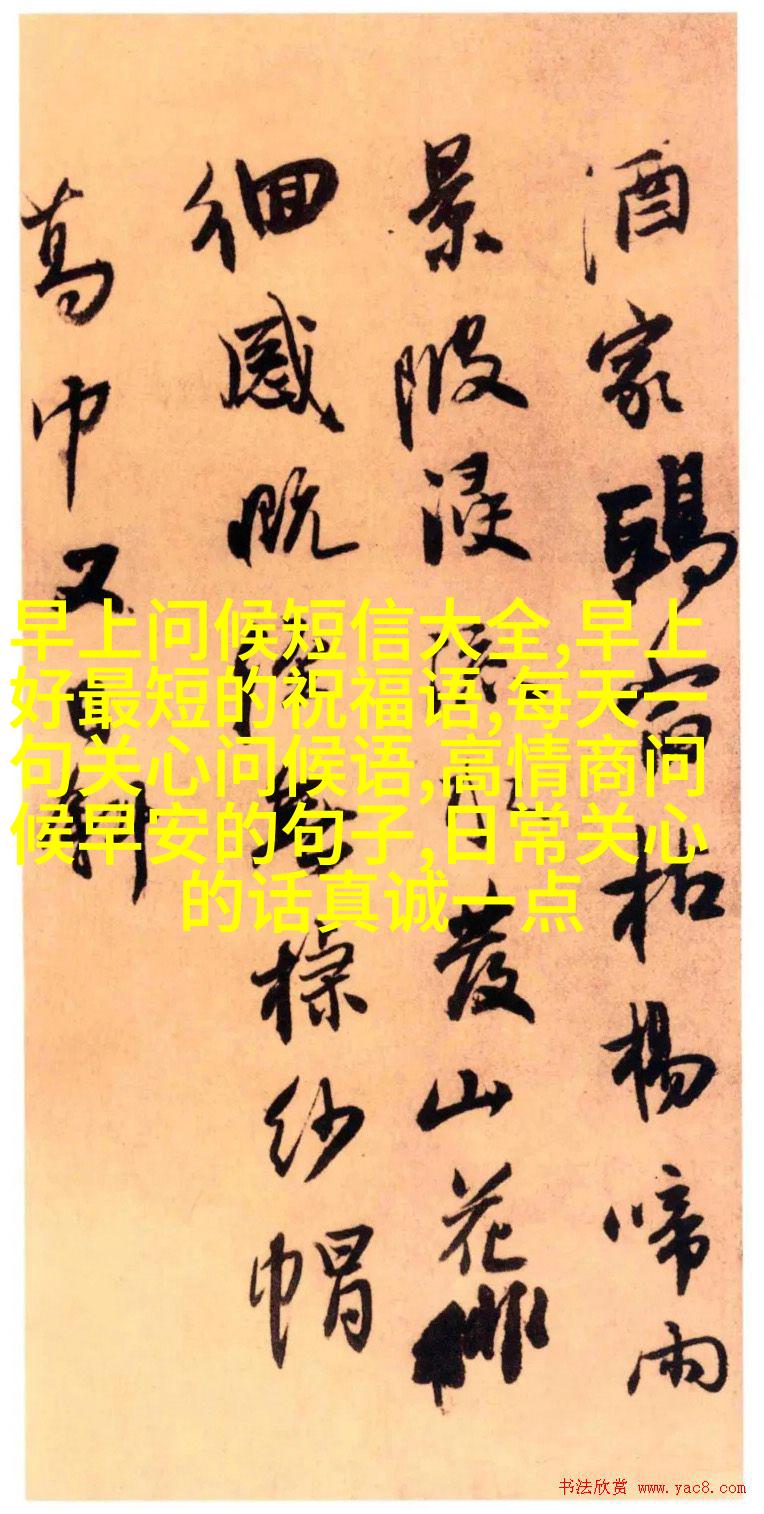 酒家鸱宿枯杨啼雨
景陂漫
發山花徘
徊感既
標纱帽
葛巾又
早上问候短信大全,早上
好最短的祝福语,每天一
句关心问候语,高情商问
候早安的句子,日常关心
的话真诚一点
书法欣赏 www.yac8.com